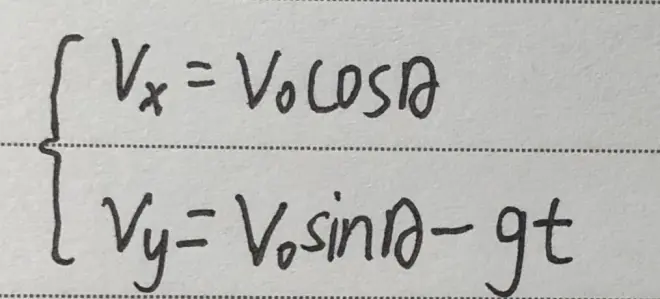 Vx = V₀cosθ
Vy = V₀sinθ - gt